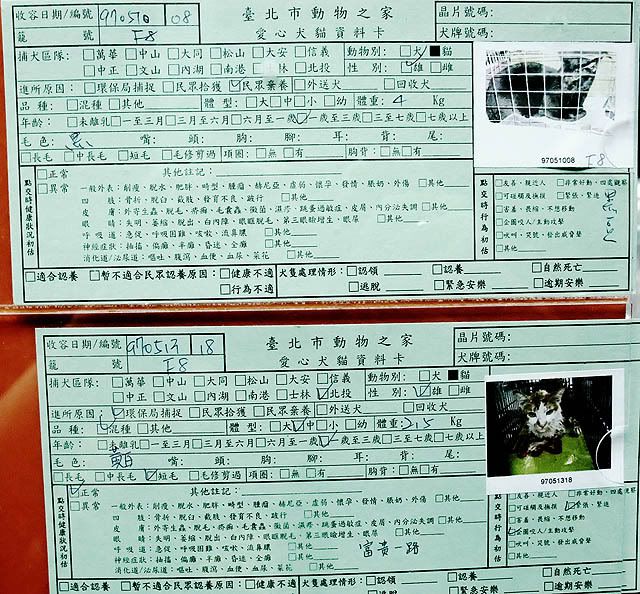 收容日期/編號 970510 08 臺北市動物之家 晶片號碼:
籠 號 F8 愛心犬貓資料卡 犬牌號碼:
捕犬區隊: □萬華□中山 □大同 □松山□大安□信義 動物別: □犬■貓
□中正□文山 □內湖 □南港□士林□北投 性 別: □雄□雌
進所原因: □環保局捕捉 □民眾拾獲 □民眾棄養□外送犬 □回收犬
品 種: □混種□其他 體 型: □大□中□小 □幼 體重: 4 Kg
年齡: □未離乳□一至三月□三至六月□六月至一歲□一歲至三歲□三至七歲□七歲以上
毛 色: 黑 嘴: 頭: 胸: 腳: 耳: 背: 尾:
□長毛 □中長毛□短毛 □毛修剪過 項圈: □無□有 胸背: □無□有
點交時健康狀況初估 □正常 其他註記:
□異常 一般外表: 削瘦、脫水、肥胖、畸型、腫瘤、赫尼亞、虛弱、懷孕、發情、脹奶、外傷□其他
四 肢: 骨折、脫臼、截肢、發育不良、跛行 □其他
皮 膚: 外寄生蟲、脫毛、疥癬、毛囊蟲、黴菌、濕疹、跳蚤過敏症、皮屑、內分泌失調□其他
眼 睛: 失明、萎縮、脫出、白內障、眼眶脫毛、第三眼瞼增生、眼屎 □其他
呼 吸 道: 急促、呼吸困難、咳嗽、流鼻膿 □其他
神經症狀: 抽搐、偏癱、半癱、昏迷、全癱 □其他
消化道/泌尿道: 嘔吐、腹瀉、血便、血尿、菜花 □其他
97051008 F8
點交時行為初估 □友善、親近人 □非常好動、四處觀察
□可碰觸及撫摸 □緊張、緊迫
□害羞、畏縮、不想移動
□企圖咬人/主動攻擊
□吠叫、哭號、發出威脅聲
□其他
□適合認養 □暫不適合民眾認養原因: □健康不適 犬隻處理情形: □認領 □認養 □自然死亡
□行為不適 □逃脫 □緊急安樂 □逾期安樂
收容日期/編號 970513 18 臺北市動物之家 晶片號碼:
籠 號 F8 愛心犬貓資料卡 犬牌號碼:
捕犬區隊: □萬華 □中山 □大同 □松山 □大安□信義 動物別: □犬■貓
□中正 □文山 □內湖 □南港 □士林□北投 性 別: □雄□雌
進所原因: □環保局捕捉 □民眾拾獲 □民眾棄養 □外送犬 □回收犬
品 種: □混種□其他 體 型: □大□中□小 □幼 體重: 2.5 Kg
年齡: □未離乳□一至三月□三至六月□六月至一歲□一歲至三歲□三至七歲□七歲以上
毛 色: 嘴: 頭: 胸: 腳: 耳: 背: 尾:
□長毛 □中長毛 □短毛 □毛修剪過 項圈: □無 □有 胸背: □無□有
97051318
點交時健康狀況初估 □正常 其他註記:
□異常 一般外表: 削瘦、脫水、肥胖、畸型、腫瘤、赫尼亞、虛弱、懷孕、發情、脹奶、外傷□其他
四 肢: 骨折、脫臼、截肢、發育不良、跛行 □其他
皮 膚: 外寄生蟲、脫毛、疥癬、毛囊蟲、黴菌、濕疹、跳蚤過敏症、皮屑、內分泌失調□其他
眼 睛: 失明、萎縮、脫出、白內障、眼眶脫毛、第三眼瞼增生、眼屎 □其他
呼 吸 道: 急促、呼吸困難、咳嗽、流鼻膿 □其他
神經症狀: 抽搐、偏癱、半癱、昏迷、全癱 □其他
消化道/泌尿道: 嘔吐、腹瀉、血便、血尿、菜花 □其他
富貴一路
點交時行為初估 □友善、親近人 □非常好動、四處觀察
□可碰觸及撫摸 □緊張、緊迫
□害羞、畏縮、不想移動
□企圖咬人/主動攻擊
□吠叫、哭號、發出威脅聲
□其他
□適合認養 □暫不適合民眾認養原因: □健康不適 犬隻處理情形: □認領 □認養 □自然死亡
□行為不適 □逃脫 □緊急安樂 □逾期安樂